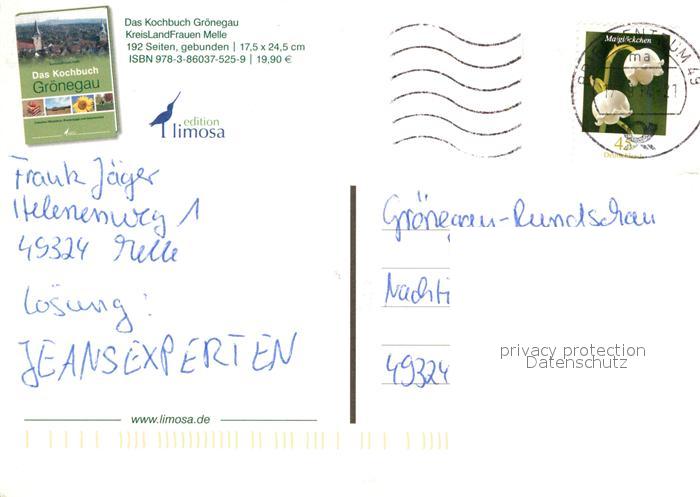 Das Kochbuch Grönegau
KreisLandFrauen Melle
192 Seiten, gebunden | 17,5 x 24,5 cm
ISBN 978-3-86037-525-9 | 19,90 €
Das Kochbuch
Grönegau
edition
limosa
Maiglöckchen
45
Deutschland
BRIEFZENTRUM 49
ma
Frank Jäger
Helenenweg 1
49324 Melle
Lösung:
JEANSEXPERTEN
www.limosa.de
Grönegau-Rundschau
Nachti
49324
privacy protection
Datenschutz